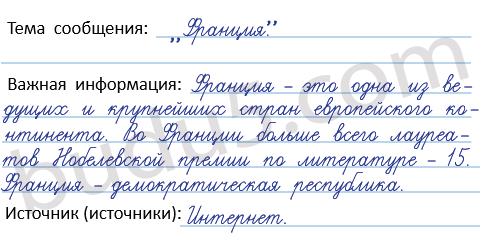 Тема сообщения: „Франция.”
Важная информация: Франция – это одна из ве-
дущих и крупнейших стран европейского ко-
нтинента. Во Франции больше всего лауреа-
тов Нобелевской премии по литературе – 15.
Франция – демократическая республика.
Источник (источники): Интернет.
budu5.com